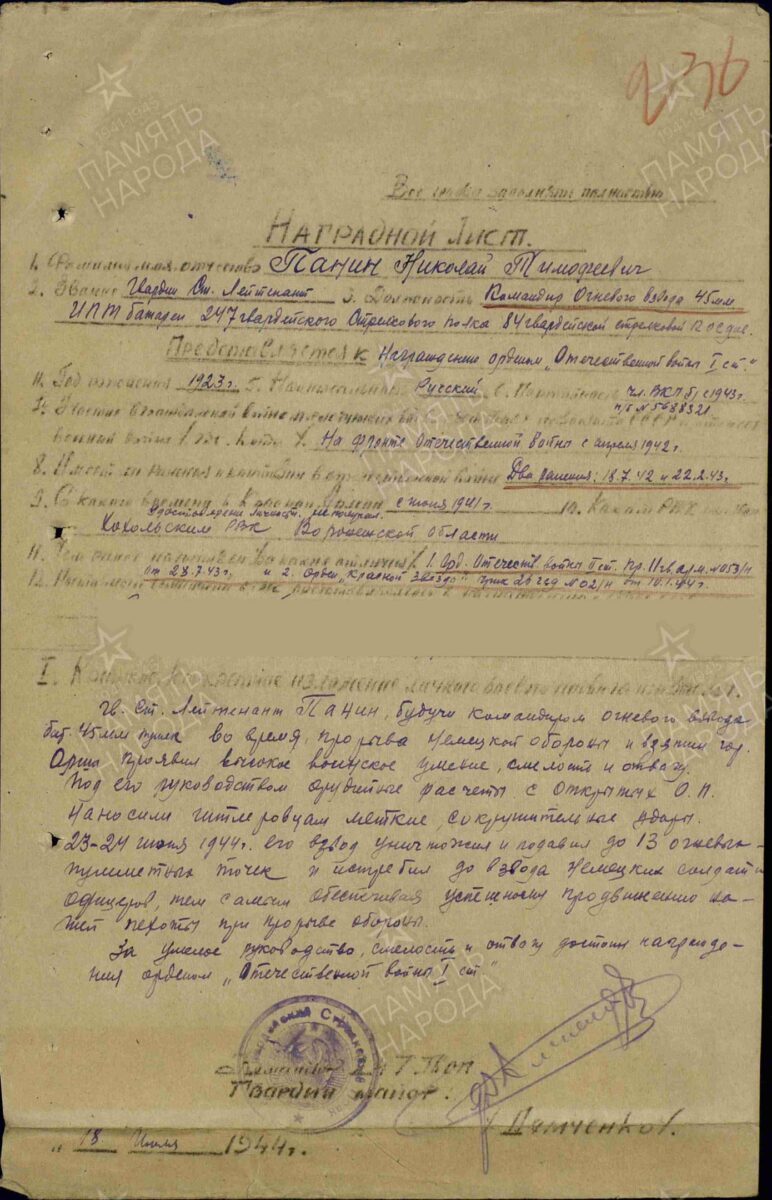 236
Все графы заполнять полностью
Наградной Лист.
1. Фамилия имя отчество Панин Николай Тимофеевич
2. Звание Гвардии Ст. Лейтенант 3. Должность Командир Огневого взвода 45мм
ИПТ батареи 247 гвардейского Стрелкового полка 84 гвардейской стрелковой
Представляется к Награждению орденом „Отечественной войны I ст."
4. Год рождения 1923г. 5. Национальность Русский 6. Партийность чл. ВКП/б/ с 1943г.
п/б № 5688321
7. Участие в гражданской войне
На фронте Отечественной войны с апреля 1942г.
8. Имеет ли ранения и контузии в отечественной войне Два ранения: 18.7.42 и 22.2.43г.
9. С какого времени в Красной Армии с июня 1941г. 10. Каким РВК
Удостоверение личности
Хохольским РВК Воронежской области
11. Чем ранее награжден /за какие отличия/ 1. Орд. Отечеств. войны II ст. Пр. 11 гв. арм. № 053/н
от 28.7.43г. и 2. Орден „Красной Звезда" 26 гсд № 02/н от 10.1.44г.
12.
I. Краткое, конкретное изложение личного боевого подвига
Гв. Ст. Лейтенант Панин, будучи командиром огневого взвода
бат. 45мм пушек во время, прорыва Немецкой обороны и взятии гор.
Орша проявил высокое воинское умение, смелость и отвагу.
Под его руководством орудийные расчеты с открытых О.П.
наносили гитлеровцам меткие, сокрушительные удары.
23-24 июня 1944г. его взвод уничтожил и подавил до 13 огневых
пулеметных точек и истребил до взвода Немецких солдат и
офицеров, тем самым обеспечивая успешному продвижению на-
шей пехоты при прорыве обороны.
За умелое руководство, смелость и отвагу достоин награжде-
ния орденом „Отечественной войны I ст"
Командир 247 гвсп
Гвардии майор.
„18" Июля 1944г.
ПАМЯТЬ НАРОДА